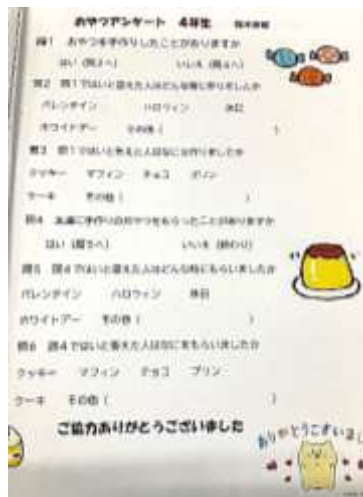 おやつアンケート 4年生
問1 おやつを手作りしたことがありますか
はい(問2へ) いいえ(問4へ)
問2 問1ではいと答えた人はどんな時に作りましたか
バレンタイン ハロウィン 休日
ホワイトデー その他( )
問3 問1ではいと答えた人はなにを作りましたか
クッキー マフィン チョコ プリン
ケーキ その他( )
問4 友達に手作りのおやつをもらったことがありますか
はい(問5へ) いいえ(終わり)
問5 問4ではいと答えた人はどんな時にもらいましたか
バレンタイン ハロウィン 休日
ホワイトデー その他( )
問6 問4ではいと答えた人はなにをもらいましたか
クッキー マフィン チョコ プリン
ケーキ その他( )
ご協力ありがとうございました
ありがとうございまし